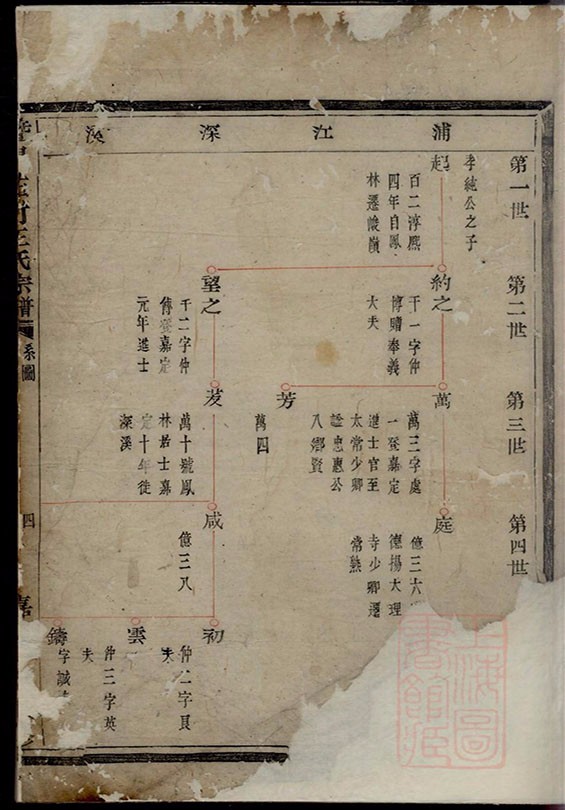 浦江深溪
第一世
第二世
第三世
第四世
孝純公之子
起
百二淳熙
四年自鳳
林遷㟞嶺
約之
千一字仲
博贈奉義
大夫
萬
萬三字處
一登嘉定
進士官至
太常少卿
諡忠惠公
入鄉賢
庭
億三六
德揚大理
寺少卿遷
常熟
芳
萬四
望之
千二字仲
傅登嘉定
元年進士
芨
萬十號鳳
林居士嘉
定十年徙
深溪
咸
億三八
初
仲二字㒷
夫
雲
仲三字英
夫
鑄
字誠
王氏宗譜
系圖
四
上海圖書館藏